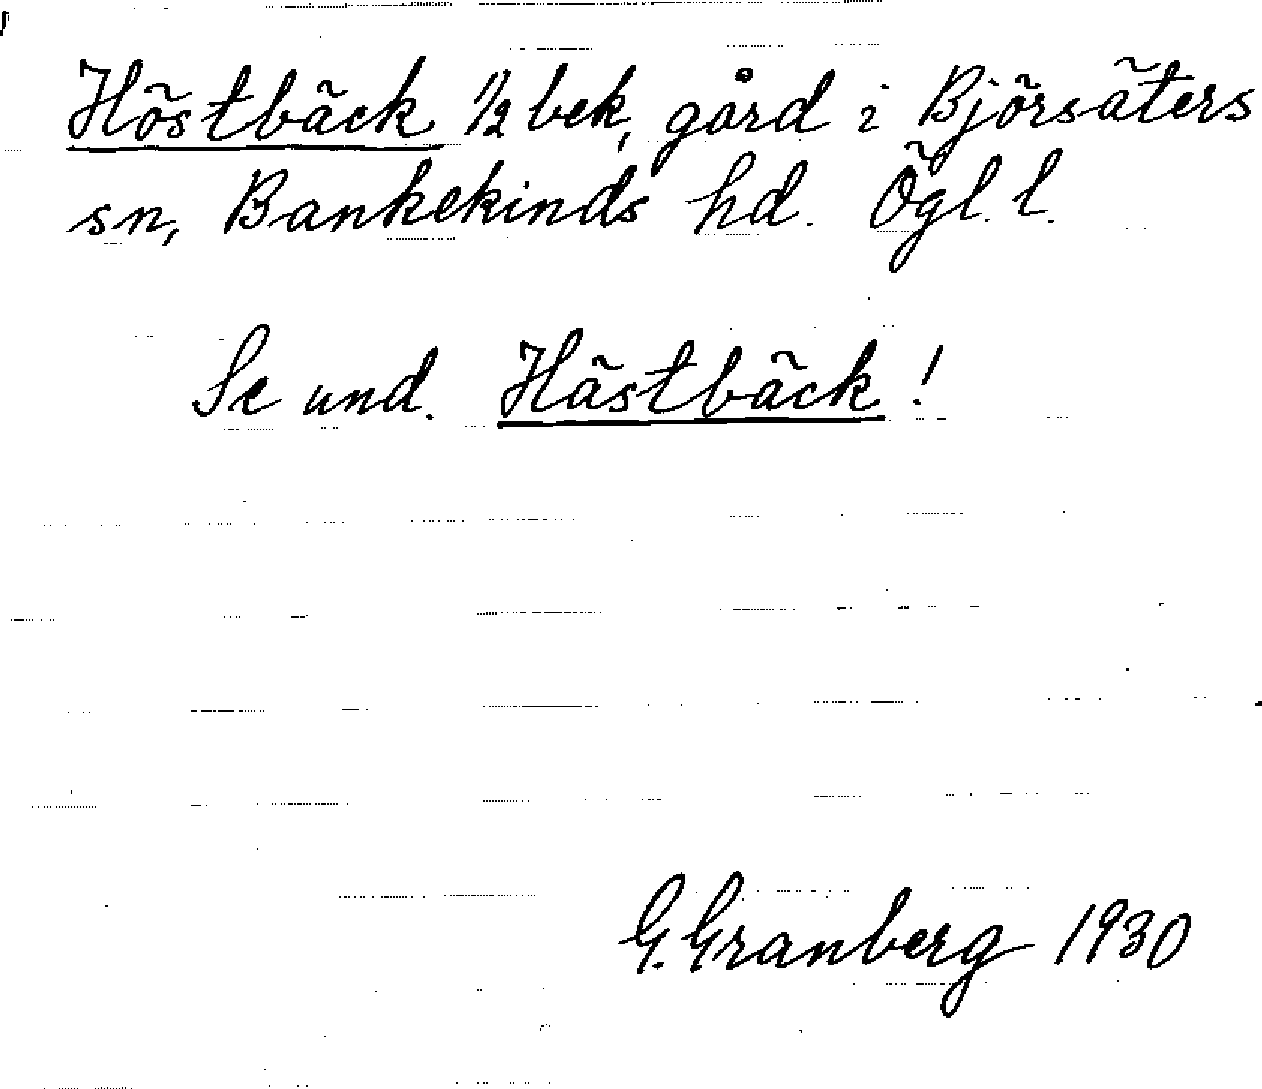 Höstbäck 1/2 bek, gård i Björsäters
sn, Bankekinds hd. Ögl. l.
Se und. Hästbäck!
G. Granberg 1930